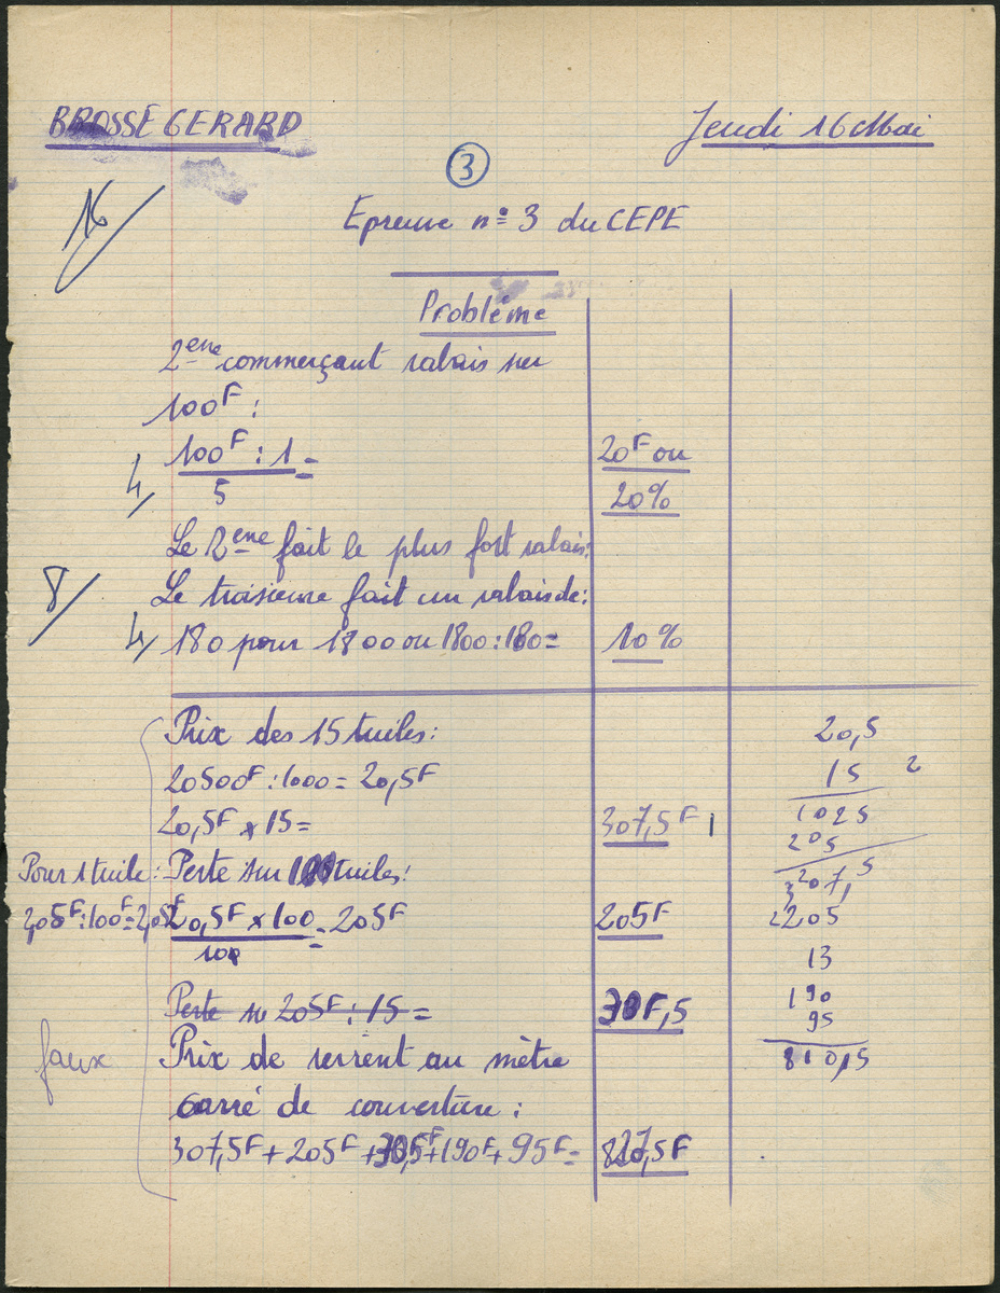 BROSSE GERARD
Jeudi 16 Mai
3
16
Epreuve n° 3 du CEPE
Problème
2ème commerçant rabais sur
100F :
100F : 1 =
5
20F ou
20%
4
Le 2ème fait le plus fort rabais.
8
Le troisieme fait un rabais de :
4
180 pour 1800 ou 1800 : 180 =
10 %
Prix des 15 tuiles :
20500F : 1000 = 20,5F
20,5F x 15 =
307,5F
1
Pour 1 tuile :
Perte sur tuiles :
20,5F x 100 = 205F
100
205F
Perte 205F : 15 =
F,5
faux
Prix de revient au mètre
carré de couverture :
307,5F + 205F + + 190F + 95F =
20,5
15
2
1025
205
307,5
205
13
190
95
810,5